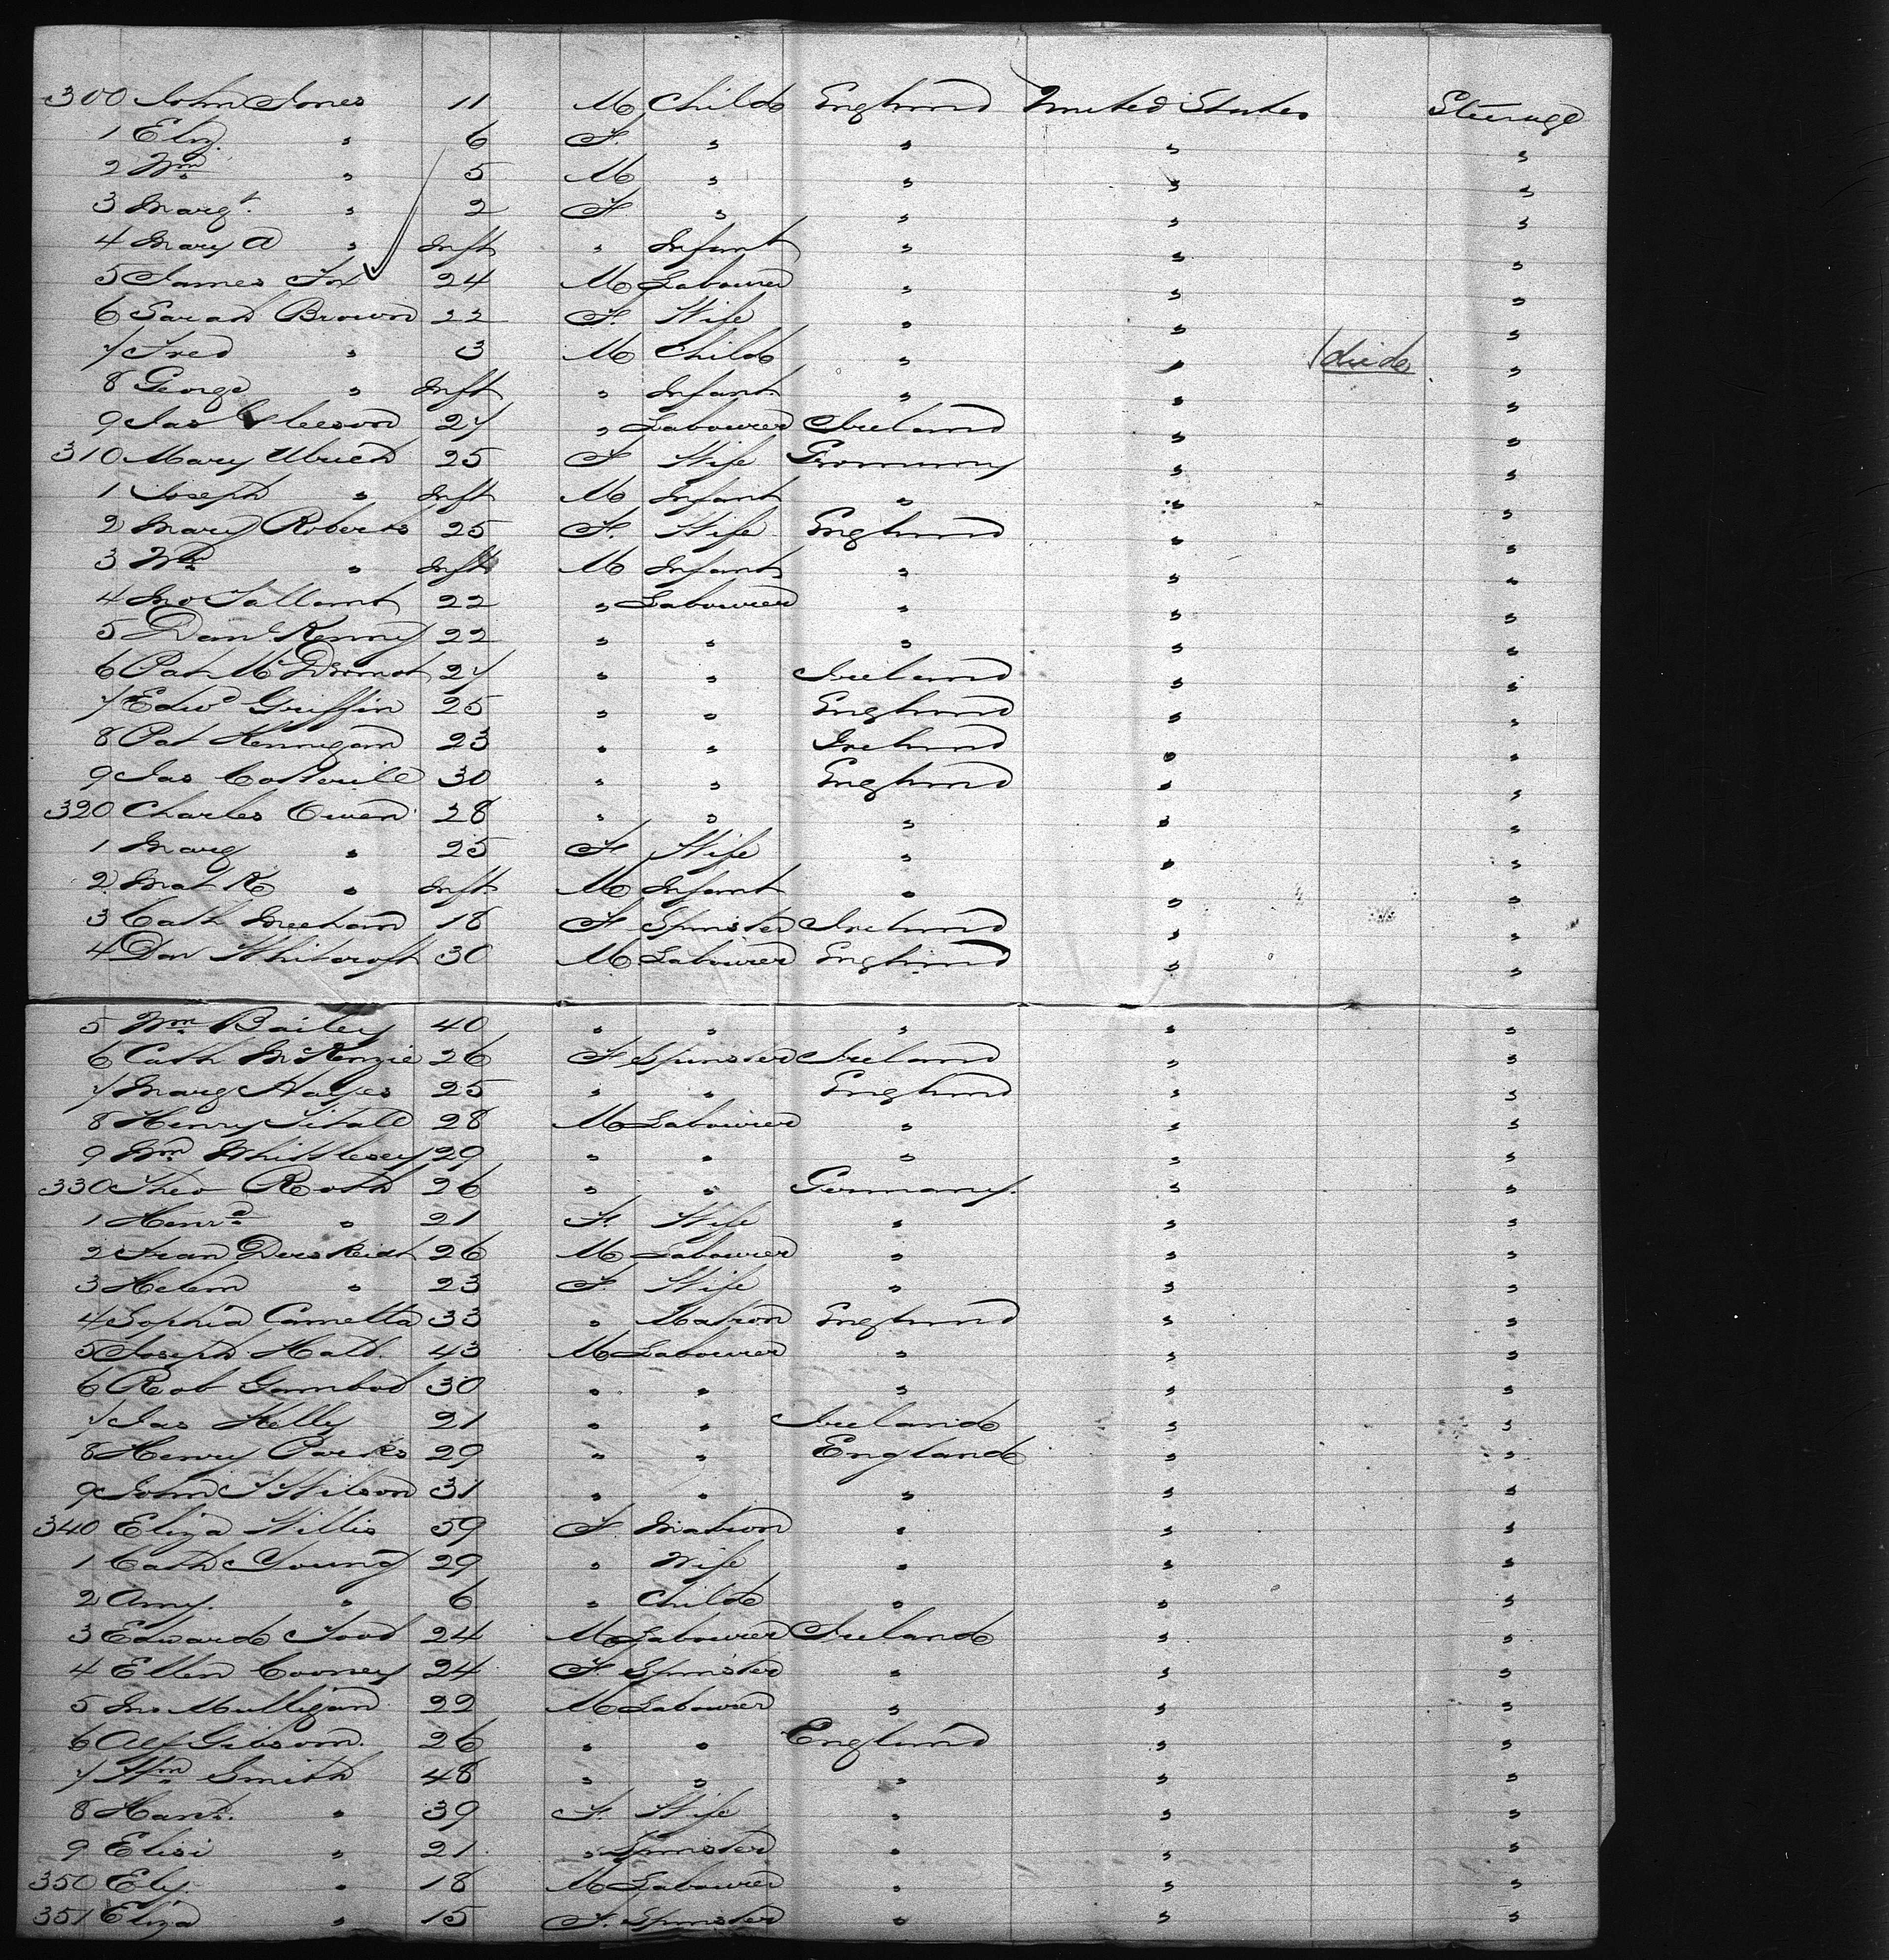 300 John Jones 11 M Child England United States Steerage
1 Eliz. " 6 F. " " " "
2 Wm " 5 M " " " "
3 Margt. " 2 F " " " "
4 Mary A " Inft " Infant " " "
5 James Fox 24 M Labourer " " "
6 Sarah Brown 22 F. Wife " " "
7 Fred " 3 M Child " " died "
8 George " Inft " Infant " " "
9 Jas Gleeson 27 " Labourer Ireland " "
310 Mary Ulrich 25 F Wife Germany " "
1 Joseph " Inft M Infant " " "
2 Mary Roberts 25 F. Wife England " "
3 Wm " Inft M Infant " " "
4 Jno Tallant 22 " Labourer " " "
5 Danl Kenny 22 " " " " "
6 Pat McDermot 27 " " Ireland " "
7 Edwd Griffin 25 " " England " "
8 Pat Kennigan 23 " " Ireland " "
9 Jas Cotterill 30 " " England " "
320 Charles Owen 28 " " " " "
1 Marg " 25 F Wife " " "
2 " Inft M Infant " " "
3 Cath Meehan 18 F Spinster Ireland " "
4 Dan Whitcroft 30 M Labourer England " "
5 Wm Bailey 40 " " " " "
6 Cath McKenzie 26 F Spinster Ireland " "
7 Marg 25 " " England " "
8 Henry 28 M Labourer " " "
9 Wm Whittlesey 29 " " " " "
330 Theo Roth 26 " " Germany. " "
1 Henra " 21 F. Wife " " "
2 Fran 26 M Labourer " " "
3 Helen " 23 F. Wife " " "
4 Sophia Cametta 33 " Matron England " "
5 Joseph Hall 43 M Labourer " " "
6 Rob 30 " " " " "
7 Jas Kelly 21 " " Ireland " "
8 Henry Parkes 29 " " England " "
9 John Wilson 31 " " " " "
340 Eliza Willis 59 F Matron " " "
1 Cath Young 29 " Wife " " "
2 Amy. " 6 " Child " " "
3 Edward 24 M Labourer Ireland " "
4 Ellen Cooney 24 F Spinster " " "
5 Jno Mulligan 22 M Labourer " " "
6 Alf Gibson. 26 " " England " "
7 Wm Smith 48 " " " " "
8 Hanh. " 39 F. Wife " " "
9 Elisi " 21 " Spinster " " "
350 Ely. " 18 M Labourer " " "
351 Eliza " 15 F. Spinster " " "